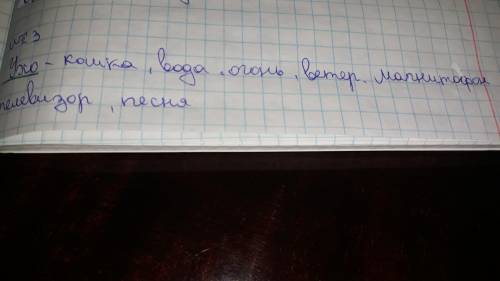 №3
Ухо - кошка, вода, огонь, ветер, магнитафон
телевизор, песня